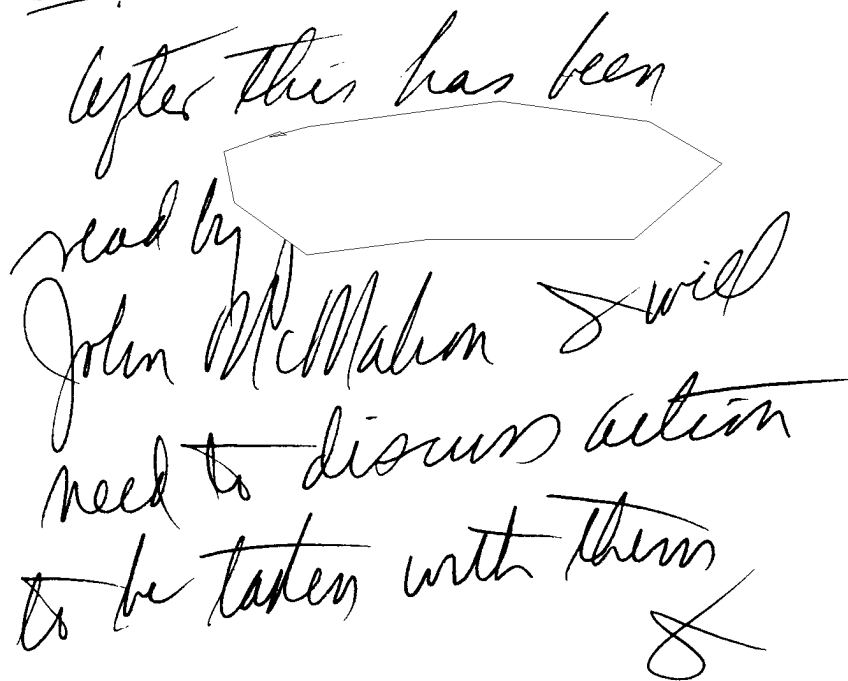 after this has been
read by
John McMahon will
need to discuss action
to be taken with them